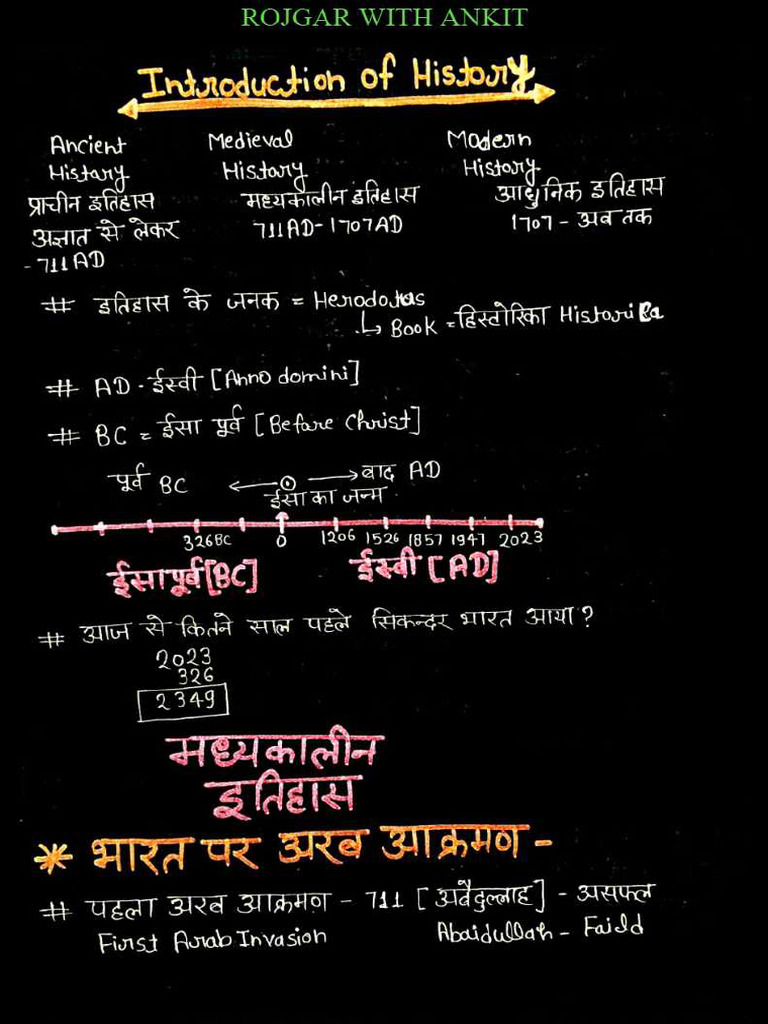 ROJGAR WITH ANKIT
Introduction of History
Ancient Medieval Modern
History History History
प्राचीन इतिहास मध्यकालीन इतिहास आधुनिक इतिहास
अज्ञात से लेकर 711AD-1707AD 1707 - अब तक
-711AD
# इतिहास के जनक = Herodotus
↳ Book = हिस्टोरिका Historica
# AD - ईस्वी [Anno domini]
# BC = ईसा पूर्व [Before Christ]
पूर्व BC ← ⊙ → बाद AD
ईसा का जन्म
326BC 0 1206 1526 1857 1947 2023
ईसापूर्व [BC] ईस्वी [AD]
# आज से कितने साल पहले सिकन्दर भारत आया?
2023
326
2349
मध्यकालीन
इतिहास
* भारत पर अरब आक्रमण -
# पहला अरब आक्रमण - 711 [अबैदुल्लाह] - असफल
First Arab Invasion Abaidullah - Faild